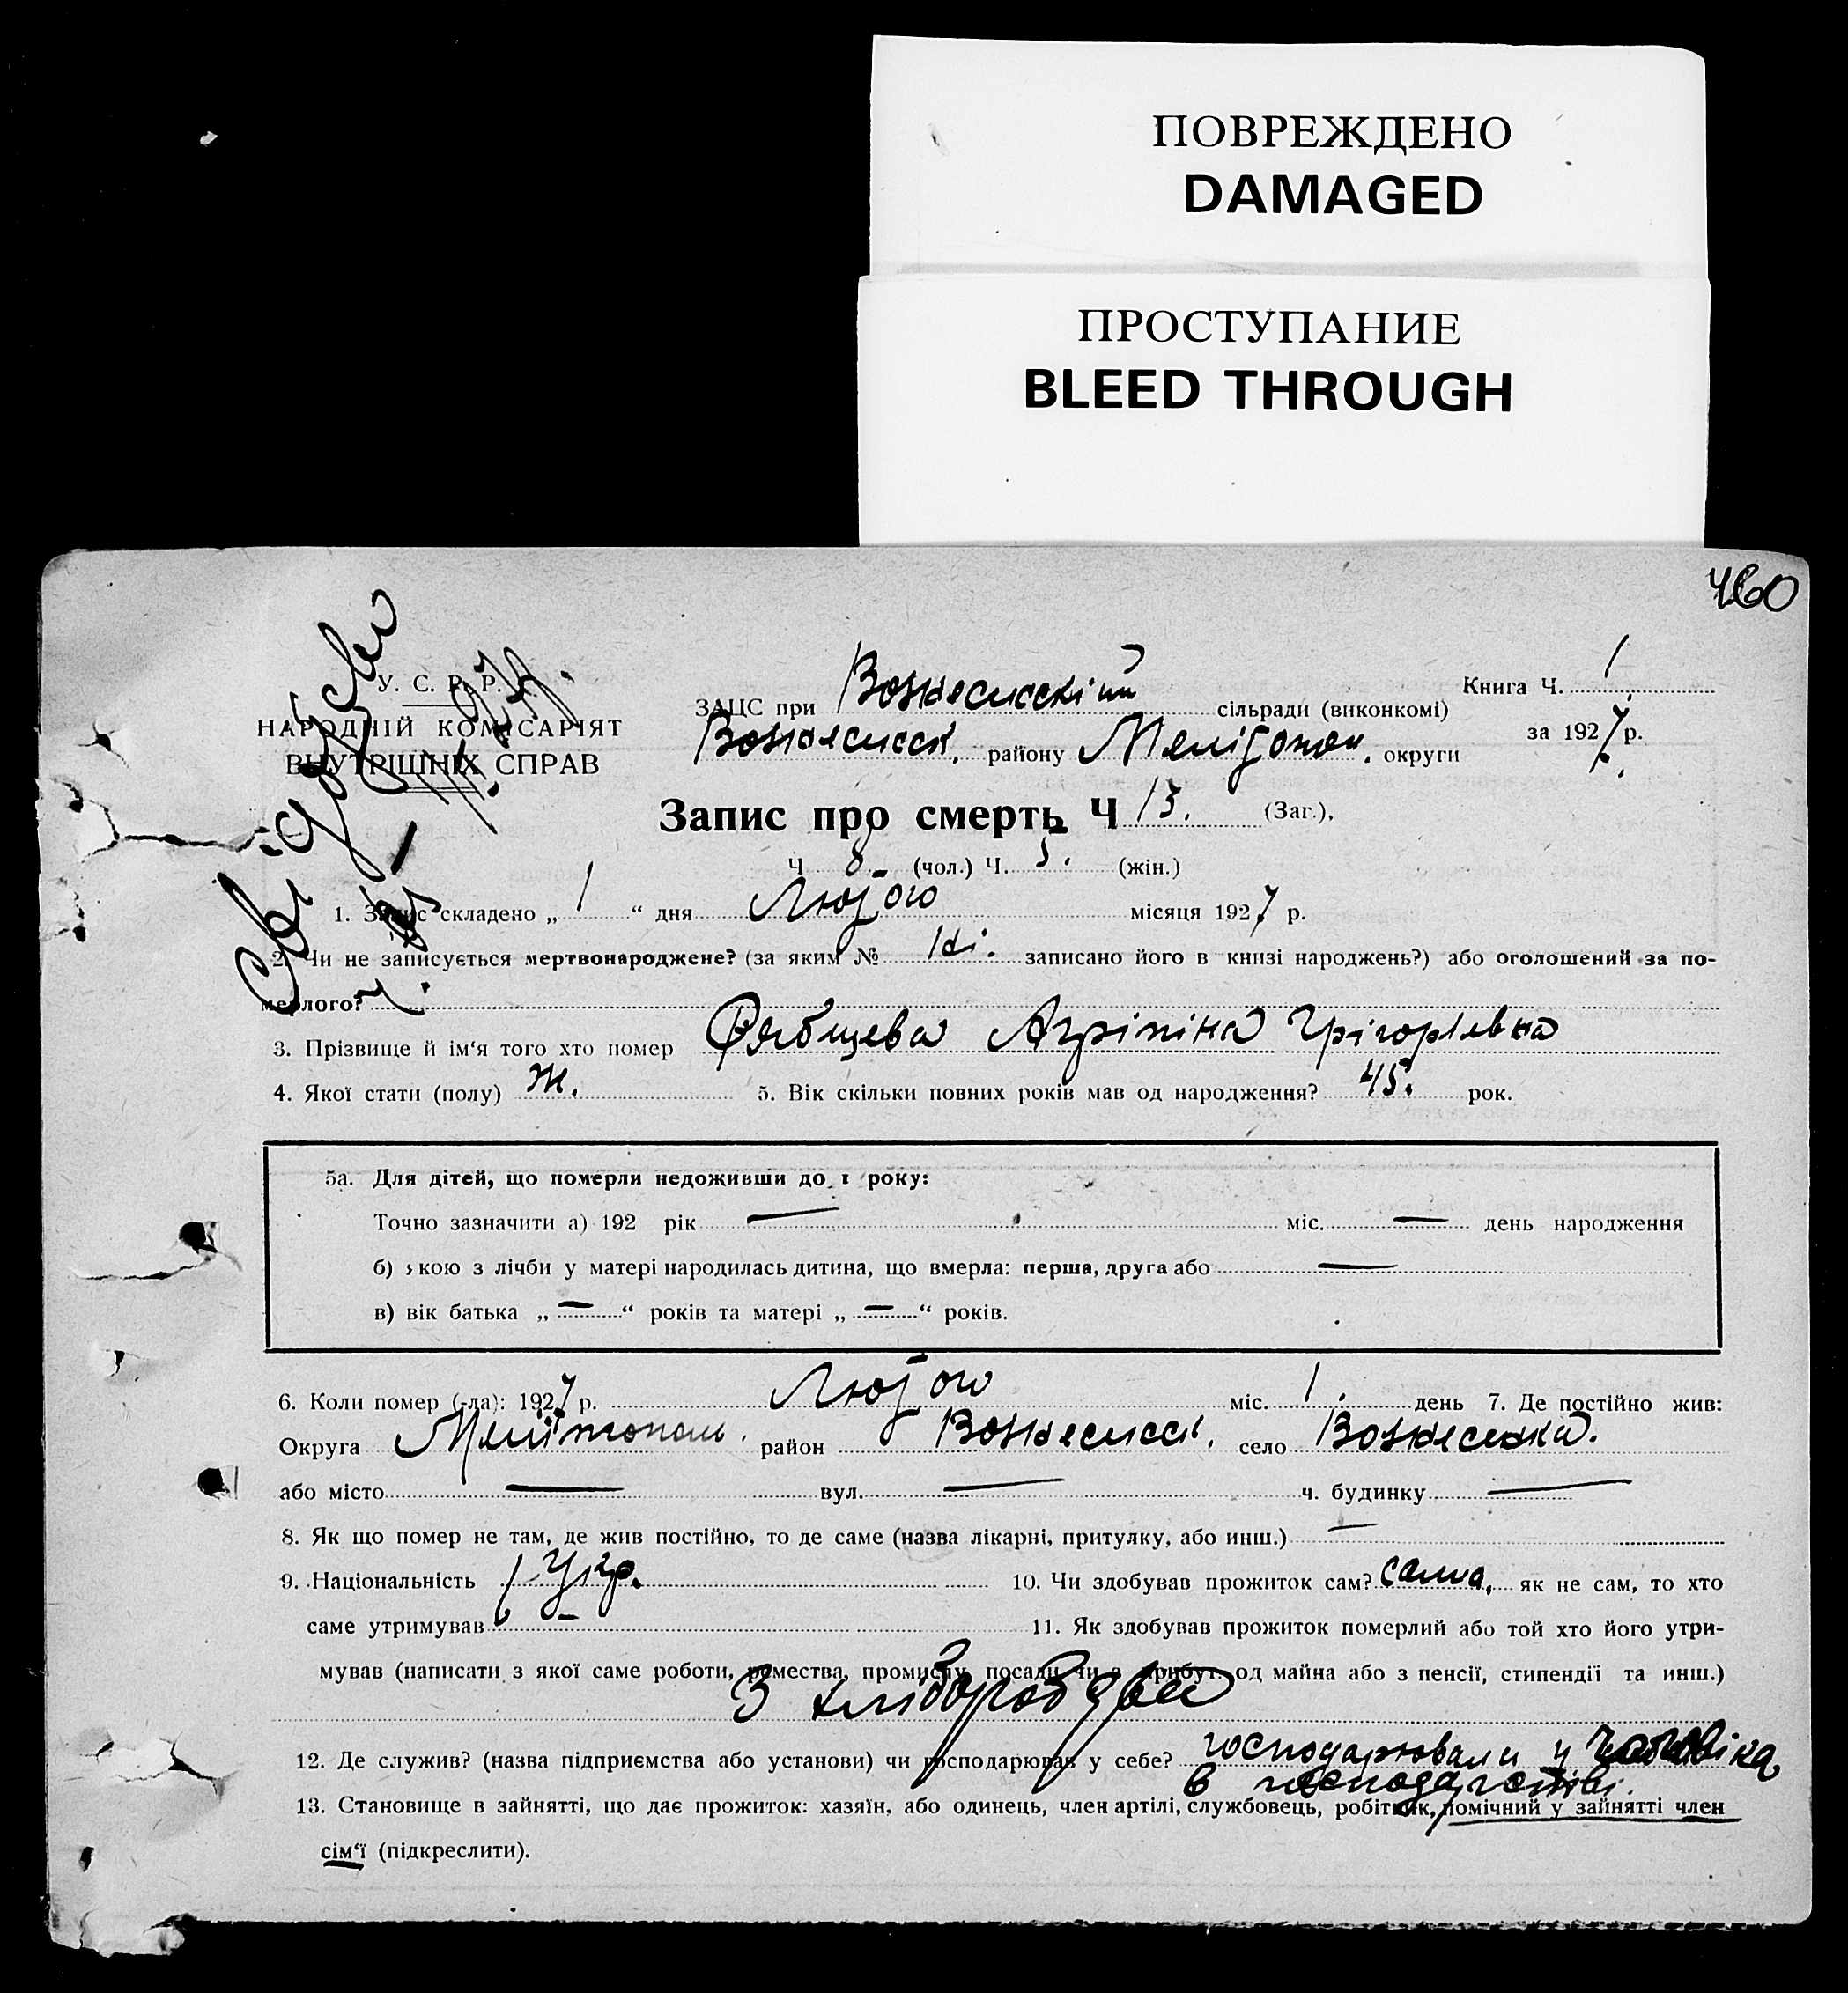 ПОВРЕЖДЕНО
DAMAGED
ПРОСТУПАНИЕ
BLEED THROUGH
460
У. С. Р. Р.
НАРОДНІЙ КОМІСАРІЯТ
ВНУТРІШНІХ СПРАВ
ЗАЦС при Вознесенскій сільради (виконкомі)
Вознесенск. району Меліт округи
Книга Ч. 1
за 1927 р.
Запис про смерть Ч 13. (Заг.),
Ч 8 (чол.) Ч. 5. (жін.)
1. Запис складено „ 1 “ дня Лютого місяця 1927 р.
2. Чи не записується мертвонароджене? (за яким № записано його в книзі народжень?) або оголошений за по-
мерлого?
3. Прізвище й ім‘я того хто помер Рябцева Агріпіна Грігорівна
4. Якої стати (полу) Ж. 5. Вік скільки повних років мав од народження? 45. рок.
5а. Для дітей, що померли недоживши до 1 року:
Точно зазначити а) 192 рік — міс. — день народження
б) якою з лічби у матері народилась дитина, що вмерла: перша, друга або —
в) вік батька „ — “ років та матері „ — “ років.
6. Коли помер (-ла): 1927 р. Лютого міс. 1. день 7. Де постійно жив:
Округа Мелітополь. район Вознесенск. село Вознесенка.
або місто — вул. — ч. будинку —
8. Як що помер не там, де жив постійно, то де саме (назва лікарні, притулку, або инш.) —
9. Національність Укр. 10. Чи здобував прожиток сам? сама, як не сам, то хто
саме утримував — 11. Як здобував прожиток померлий або той хто його утри-
мував (написати з якої саме роботи, ремества, промислу, посади чи з прибут. од майна або з пенсії, стипендії та инш.)
З хліборобства
12. Де служив? (назва підприємства або установи) чи господарював у себе? господарювали у чоловіка
в господарстві.
13. Становище в зайнятті, що дає прожиток: хазяїн, або одинець, член артілі, службовець, робітник, помічний у зайнятті член
сім‘ї (підкреслити).